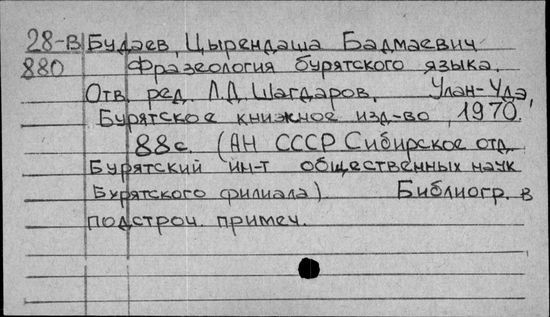 28-В Будаев, Цырендаша Бадмаевич
880 Фразеология бурятского языка.
Отв. ред. Л.Д. Шагдаров. Улан-Удэ,
Бурятское книжное изд-во, 1970.
88с. (АН СССР Сибирское отд.
Бурятский ин-т общественных наук
Бурятского филиала). Библиогр. в
подстроч. примеч.